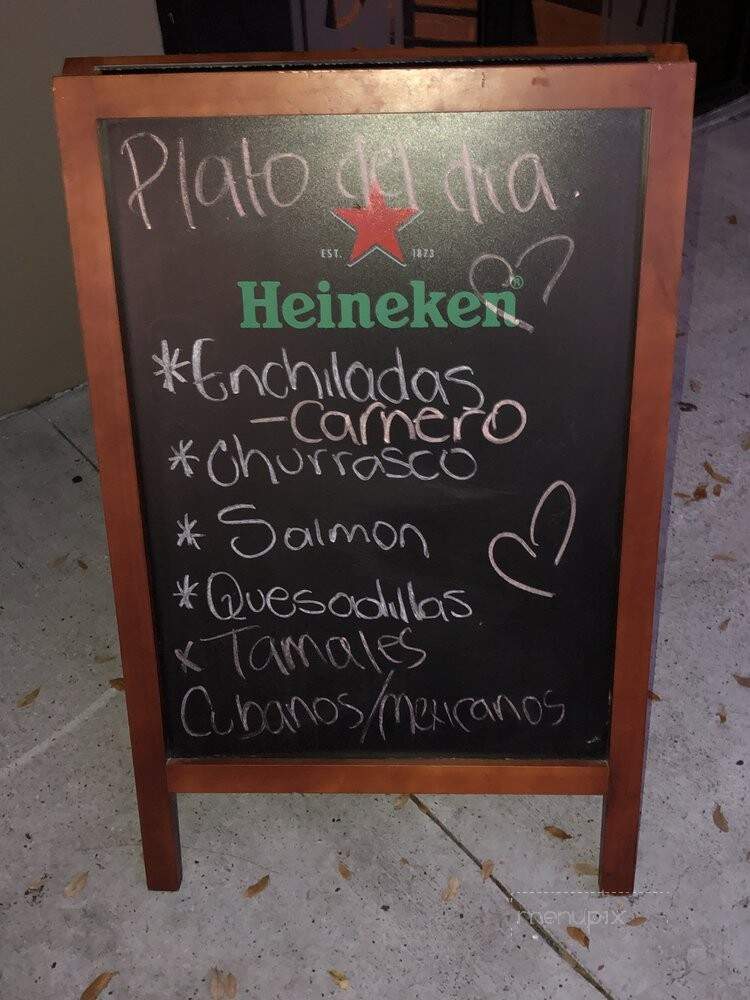 Plato del dia.
EST. 1873
Heineken®
*Enchiladas
-Carnero
*Churrasco
*Salmon
*Quesadillas
x Tamales
Cubanos/Mexicanos
menupix